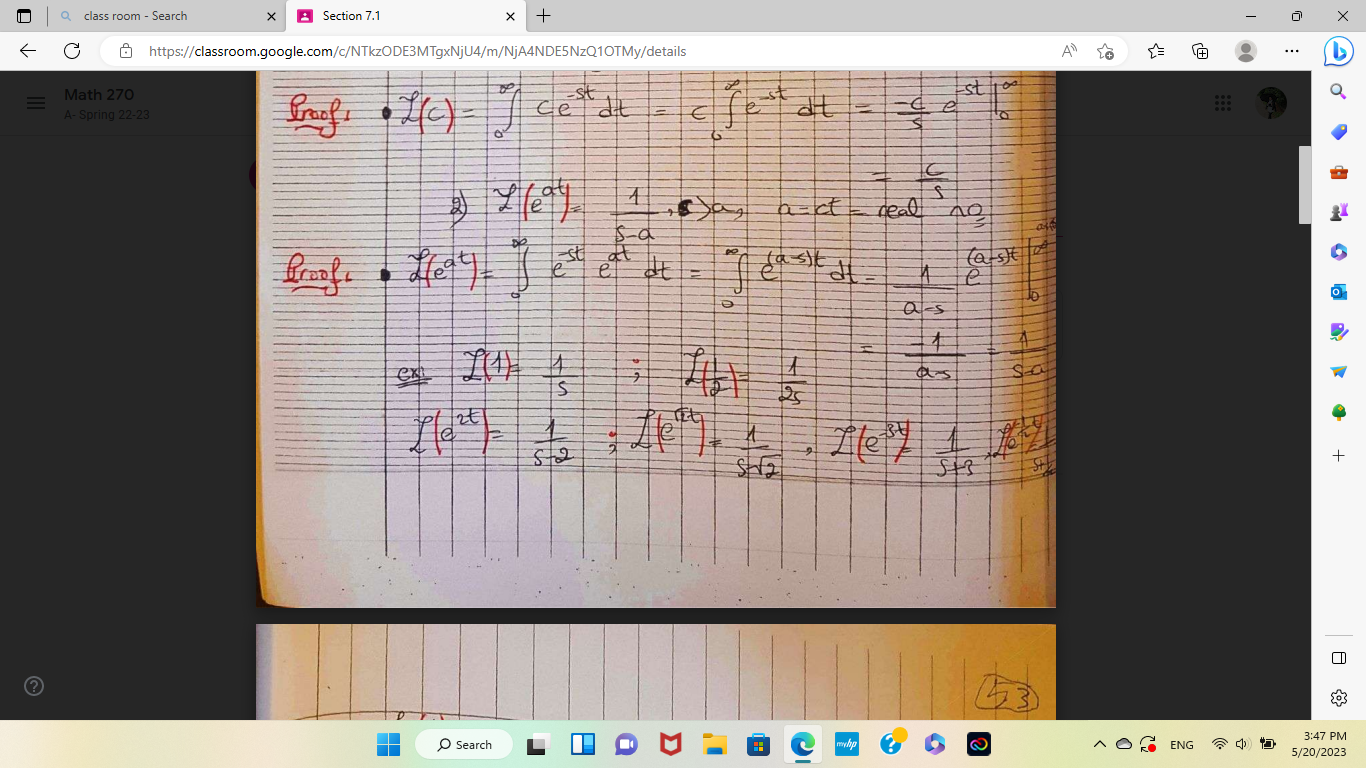 class room - Search
Section 7.1
https://classroom.google.com/c/NTkzODE3MTgxNjU4/m/NjA4NDE5NzQ1OTMy/details
Math 270
A- Spring 22-23
Proof: • ℒ(c) = ∫₀^∞ c e^{-st} dt = c ∫₀^∞ e^{-st} dt = -c/s e^{-st} |₀^∞
= c/s
2) ℒ(e^{at}) = 1/(s-a), s>a, a = ct = real no
Proof: • ℒ(e^{at}) = ∫₀^∞ e^{-st} e^{at} dt = ∫₀^∞ e^{(a-s)t} dt = 1/(a-s) e^{(a-s)t} |₀^∞
= -1/(a-s) = 1/(s-a)
ex: ℒ(1) = 1/s ; ℒ(1/2) = 1/2s
ℒ(e^{2t}) = 1/(s-2) ; ℒ(e^{√2t}) = 1/(s-√2) , ℒ(e^{-3t}) = 1/(s+3) ,
53
Search
ENG
3:47 PM
5/20/2023